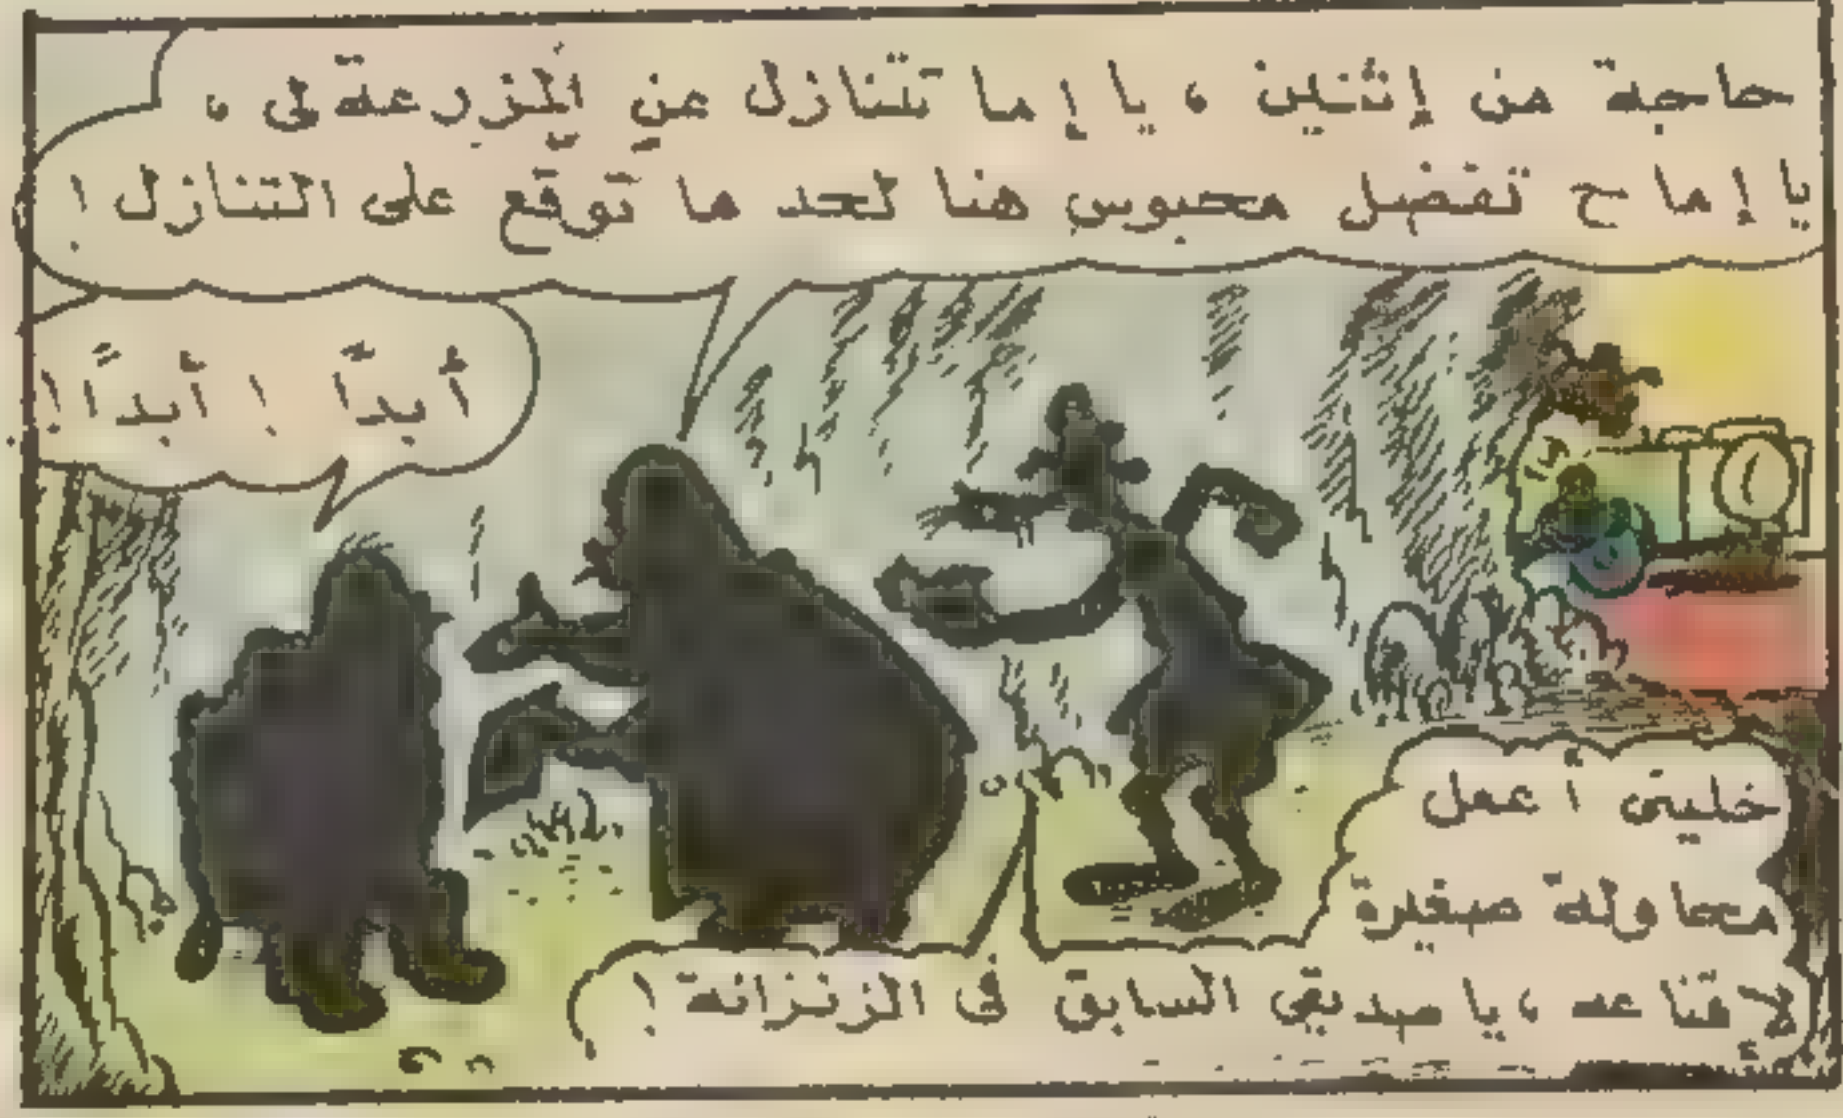 حاجة من إثنين ، يا إما تتنازل عن المزرعة لى ،
يا إما ح تفضل محبوس هنا لحد ما توقع على التنازل !
أبدًا ! أبدًا !
خلينى أعمل
محاولة صغيرة
لإقناعه ، يا صديقى السابق فى الزنزانة !